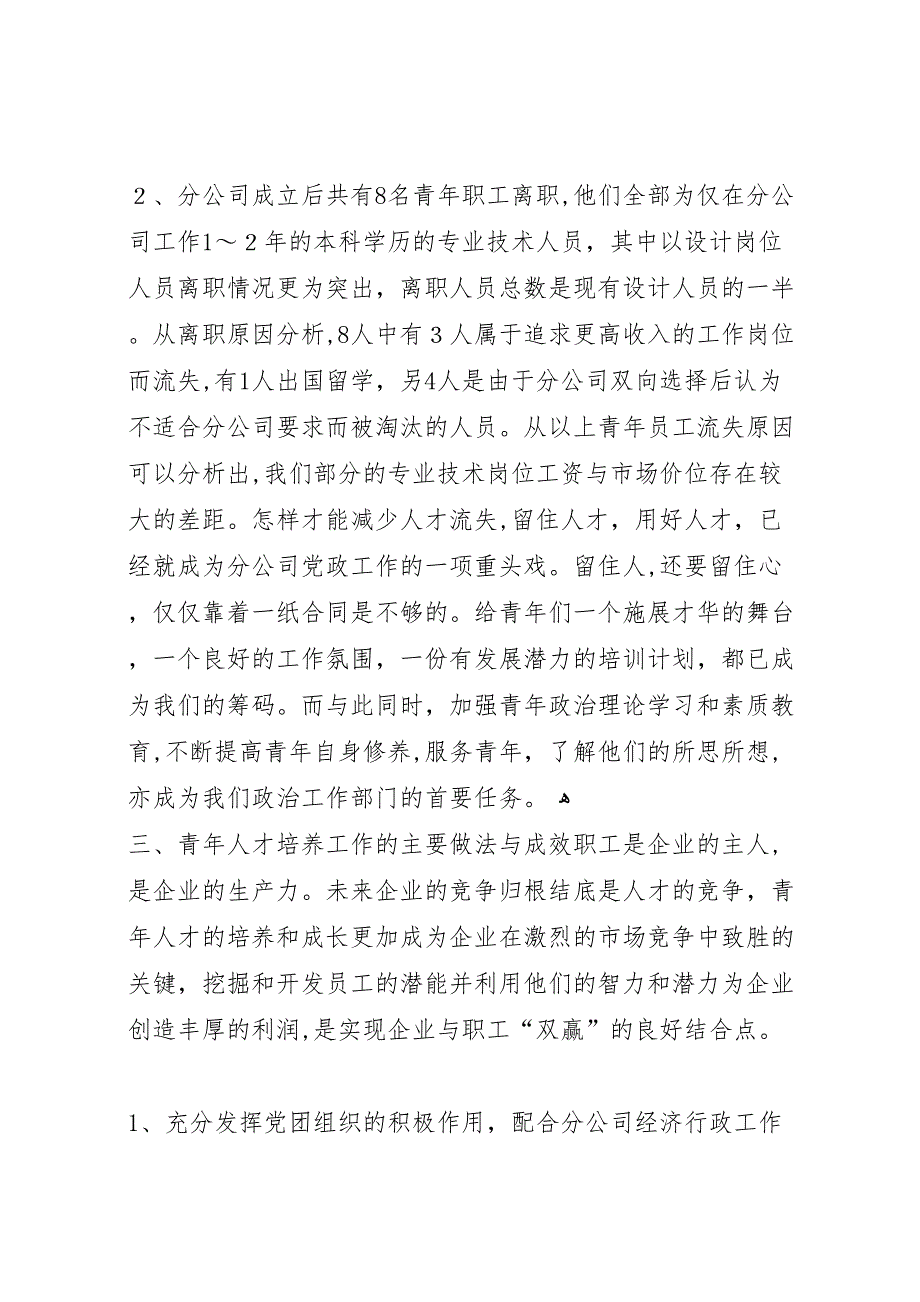 ２、分公司成立后共有8名青年职工离职,他们全部为仅在分公
司工作1～２年的本科学历的专业技术人员，其中以设计岗位
人员离职情况更为突出，离职人员总数是现有设计人员的一半
。从离职原因分析,8人中有３人属于追求更高收入的工作岗位
而流失,有1人出国留学，另4人是由于分公司双向选择后认为
不适合分公司要求而被淘汰的人员。从以上青年员工流失原因
可以分析出,我们部分的专业技术岗位工资与市场价位存在较
大的差距。怎样才能减少人才流失,留住人才，用好人才，已
经就成为分公司党政工作的一项重头戏。留住人,还要留住心
，仅仅靠着一纸合同是不够的。给青年们一个施展才华的舞台
，一个良好的工作氛围，一份有发展潜力的培训计划，都已成
为我们的筹码。而与此同时，加强青年政治理论学习和素质教
育,不断提高青年自身修养,服务青年，了解他们的所思所想，
亦成为我们政治工作部门的首要任务。 ﻫ
三、青年人才培养工作的主要做法与成效职工是企业的主人，
是企业的生产力。未来企业的竞争归根结底是人才的竞争，青
年人才的培养和成长更加成为企业在激烈的市场竞争中致胜的
关键，挖掘和开发员工的潜能并利用他们的智力和潜力为企业
创造丰厚的利润,是实现企业与职工“双赢”的良好结合点。
1、充分发挥党团组织的积极作用，配合分公司经济行政工作